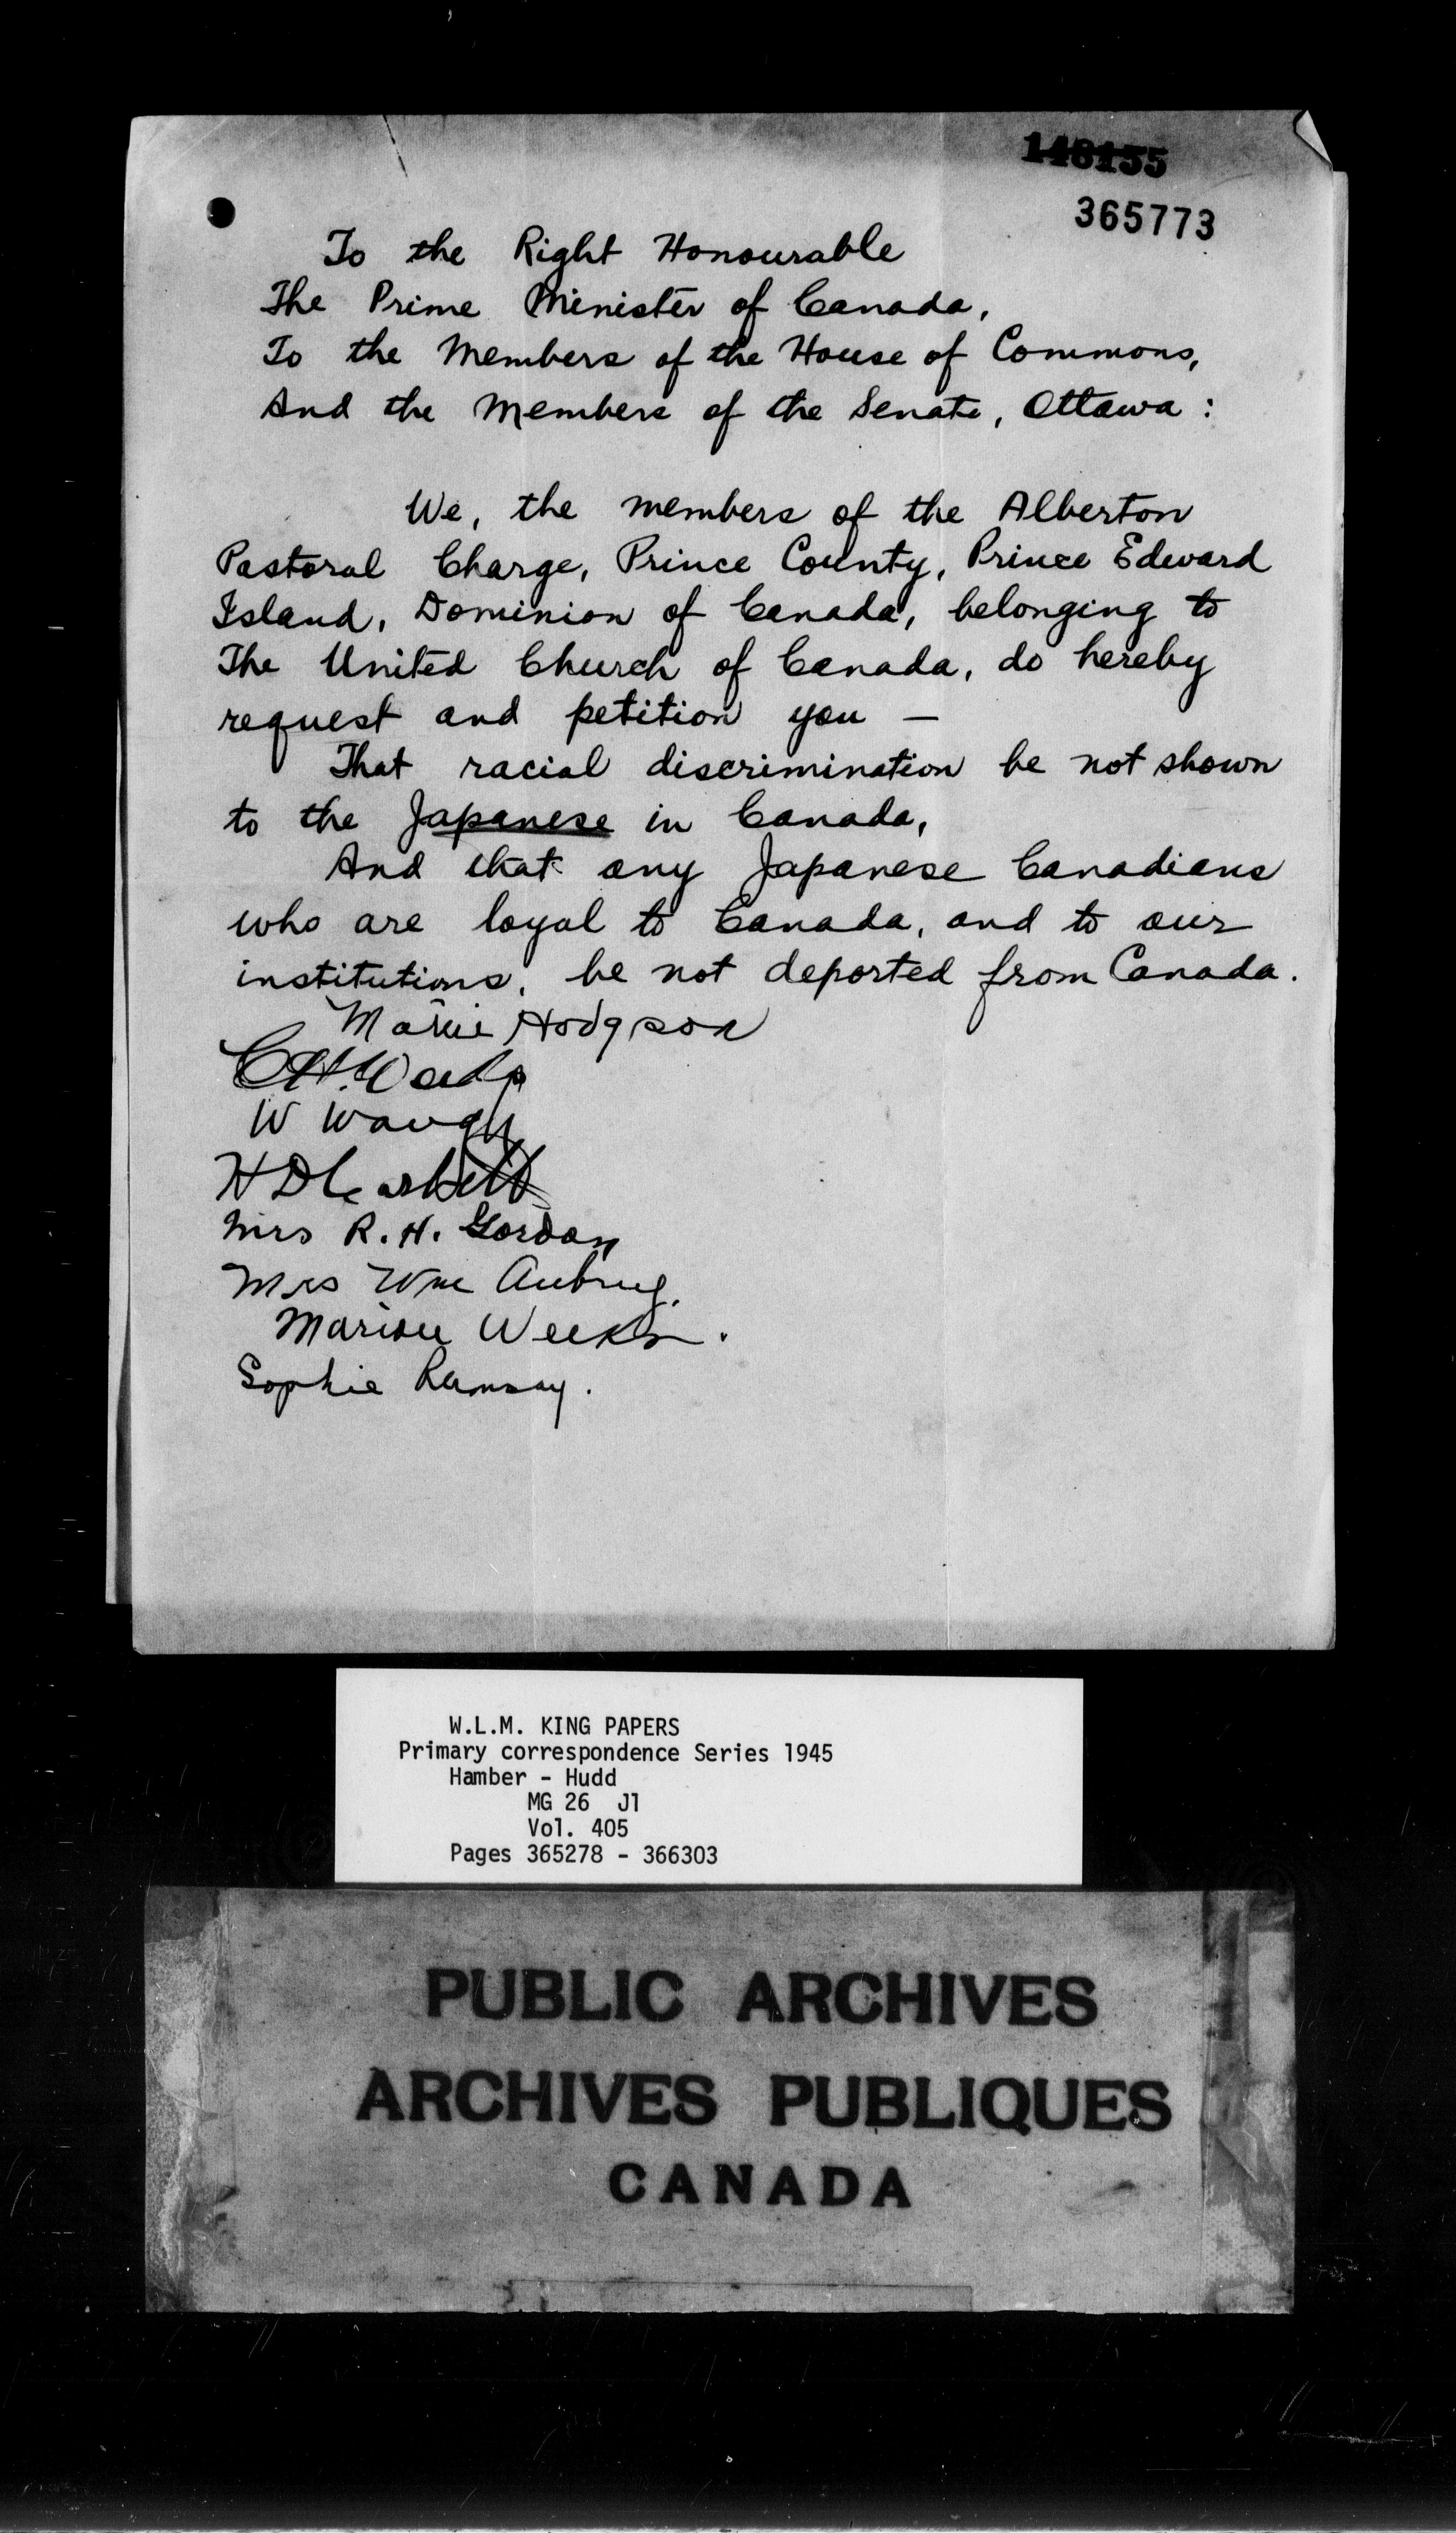 148155
365773
To the Right Honourable
The Prime Minister of Canada,
To the Members of the House of Commons,
And the Members of the Senate, Ottawa :
We, the members of the Alberton
Pastoral Charge, Prince County, Prince Edward
Island, Dominion of Canada, belonging to
The United Church of Canada, do hereby
request and petition you —
That racial discrimination be not shown
to the Japanese in Canada,
And that any Japanese Canadians
who are loyal to Canada, and to our
institutions, be not deported from Canada.
Marie Hodgson
W Waugh
Mrs R. H. Gordon
Mrs Wm
Weeks.
Sophie Ramsay.
W.L.M. KING PAPERS
Primary correspondence Series 1945
Hamber - Hudd
MG 26 J1
Vol. 405
Pages 365278 - 366303
PUBLIC ARCHIVES
ARCHIVES PUBLIQUES
CANADA